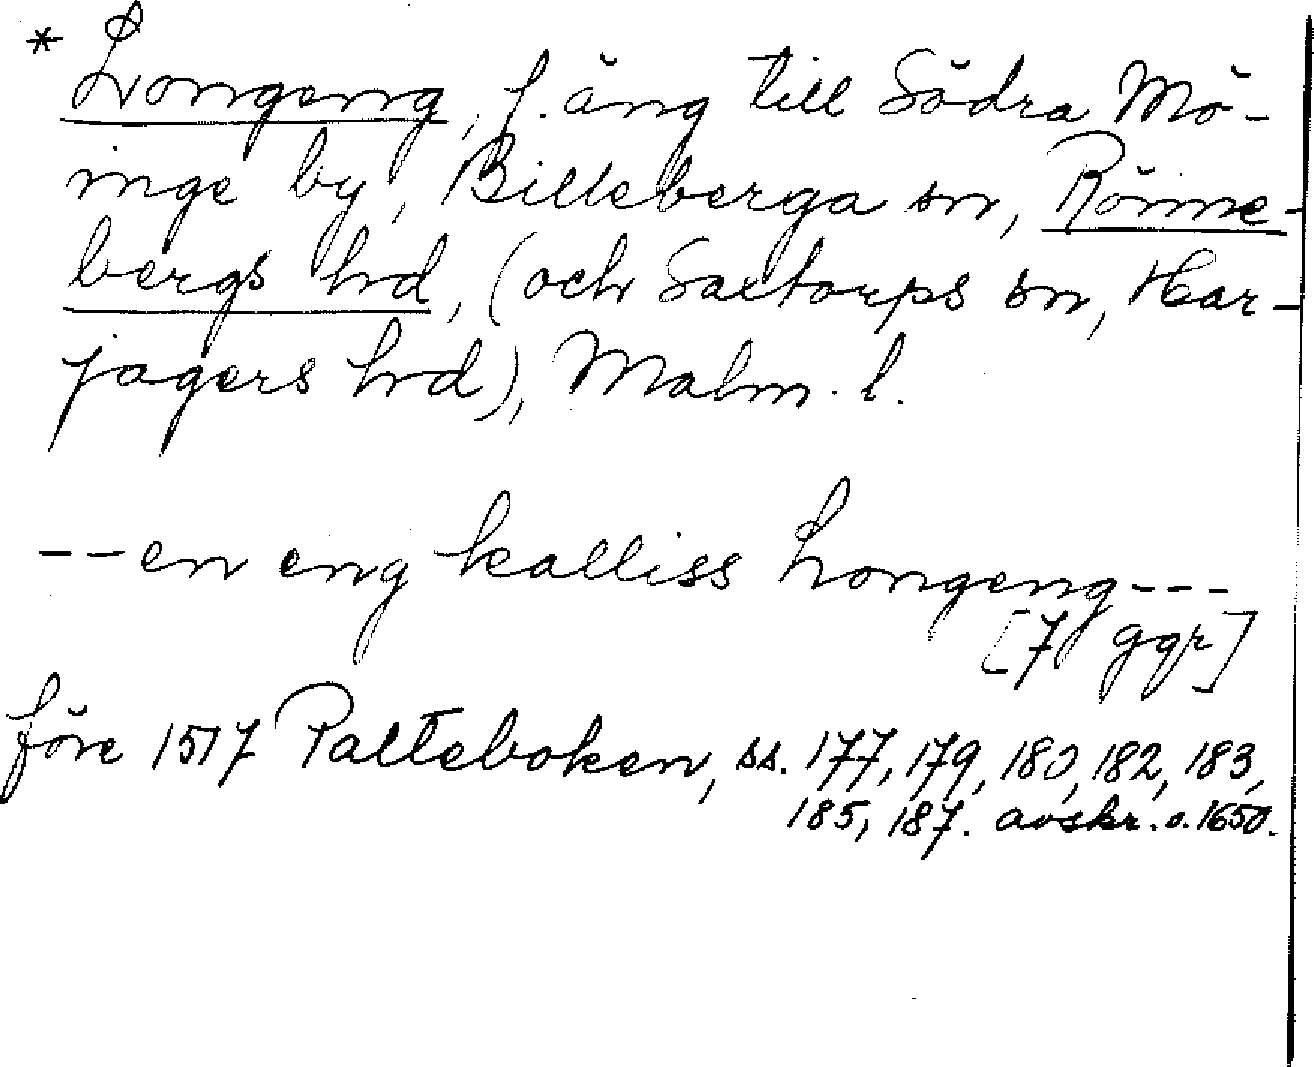 * Longeng, f. äng till Södra Mö-
inge by, Billeberga sn, Rönne-
bergs hd, (och Saxtorps sn, Har-
jagers hd), Malm. l.
--en eng kalliss Longeng---
[7 ggr]
före 1517 Palteboken, ss. 177, 179, 180, 182, 183,
185, 187. avskr. o. 1650.